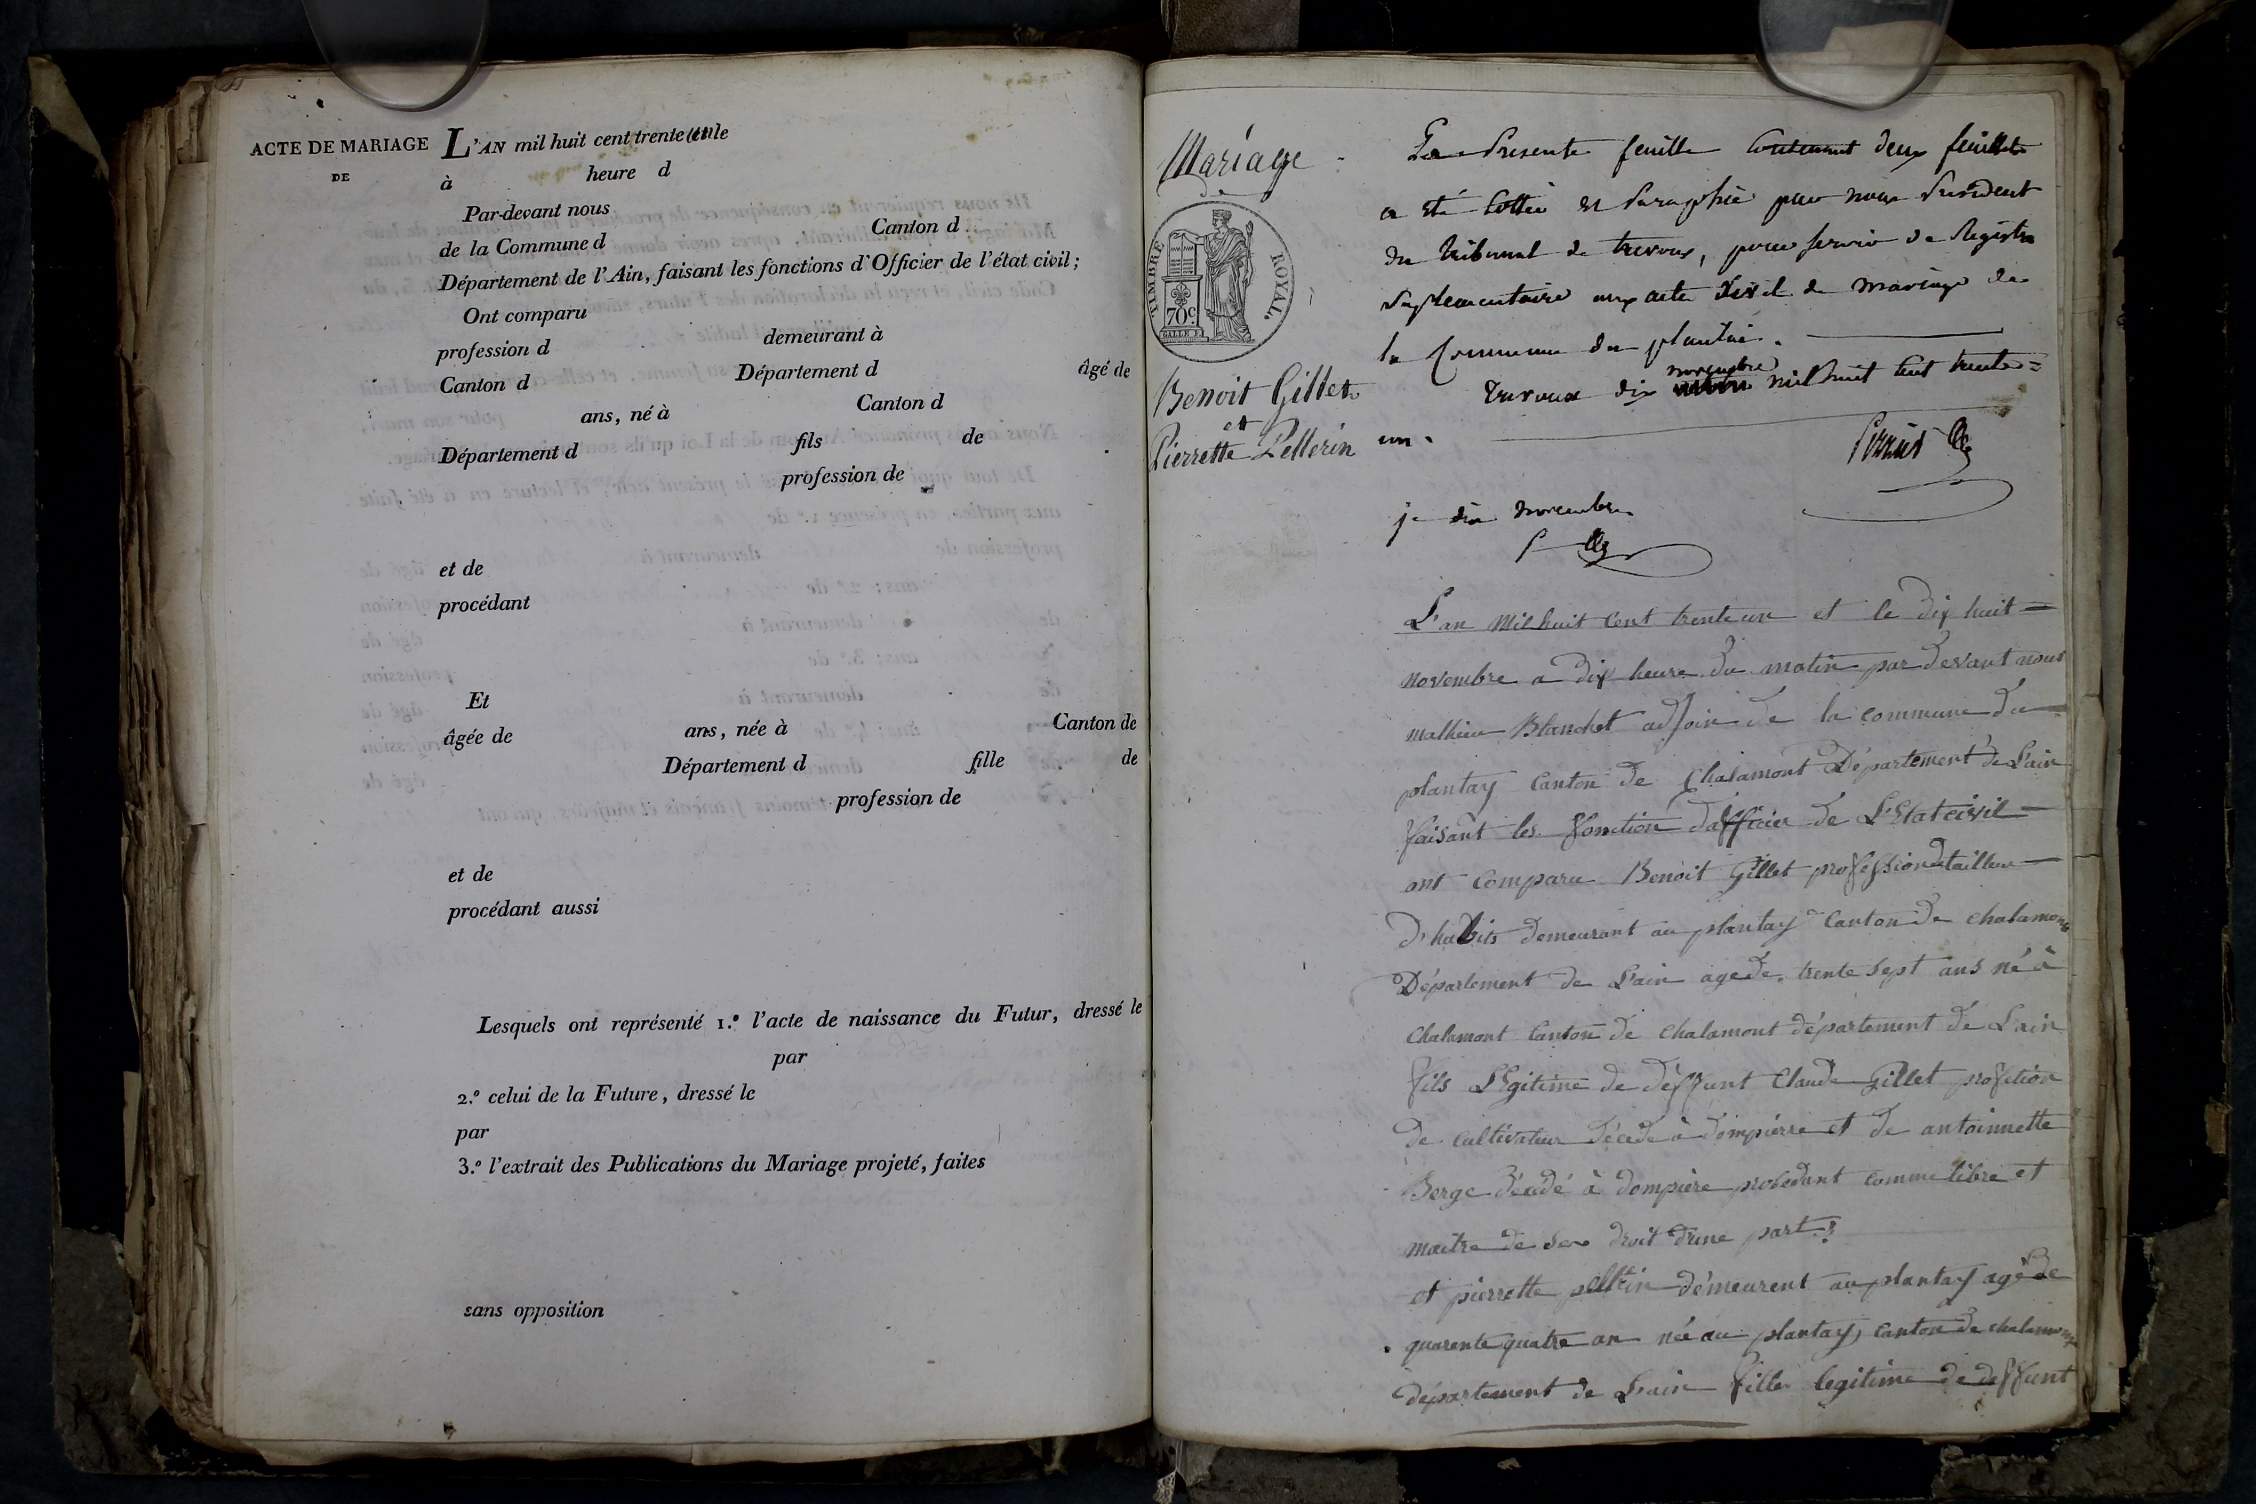 ACTE DE MARIAGE
DE
L'AN mil huit cent trente un le
à heure d
Par-devant nous
de la Commune d Canton d
Département de l'Ain, faisant les fonctions d'Officier de l'état civil;
Ont comparu
profession d demeurant à
Canton d Département d âgé de
ans, né à Canton d
Département d fils de
profession de
et de
procédant
Et
âgée de ans, née à Canton de
Département d fille de
profession de
et de
procédant aussi
Lesquels ont représenté 1.° l'acte de naissance du Futur, dressé le
par
2.° celui de la Future, dressé le
par
3.° l'extrait des Publications du Mariage projeté, faites
sans opposition
Mariage
TIMBRE ROYAL.
70c.
Benoit Gillet
et
Pierrette Pellerin
La Presente feuille contenant deux feuillets
a été Cottée et Paraphée par nous President
du tribunal de trevoux, pour servir de Registre
Suplementaire aux actes Civil de mariage de
la Commune du plantai.
trevoux dix novembre mil huit cent trente=
un.
je dix novembre
L'an Mil huit cent trente un et le dix huit
novembre a dix heure du matin par devant nous
mathieu Blanchet adjoin de la commune du
plantay canton de Chalamont Département de L'ain
faisant les fonction dofficier de L'Etat civil
ont comparu Benoit Gillet profession de tailleur
d'habits demeurant au plantay canton de chalamont
Département de L'ain age de trente sept ans né à
chalamont canton de chalamont département de L'ain
fils LEgitime de deffunt Claude Gillet profetion
de cultivateur décédé à dompierre et de antoinnette
Berge décédé à dompiere procedant comme libre et
maitre de ses droit d'une part
et pierrette pelerin démeurent au plantay agé de
quarente quatre an née au plantay canton de chalamont
département de L'ain fille legitime de deffunt